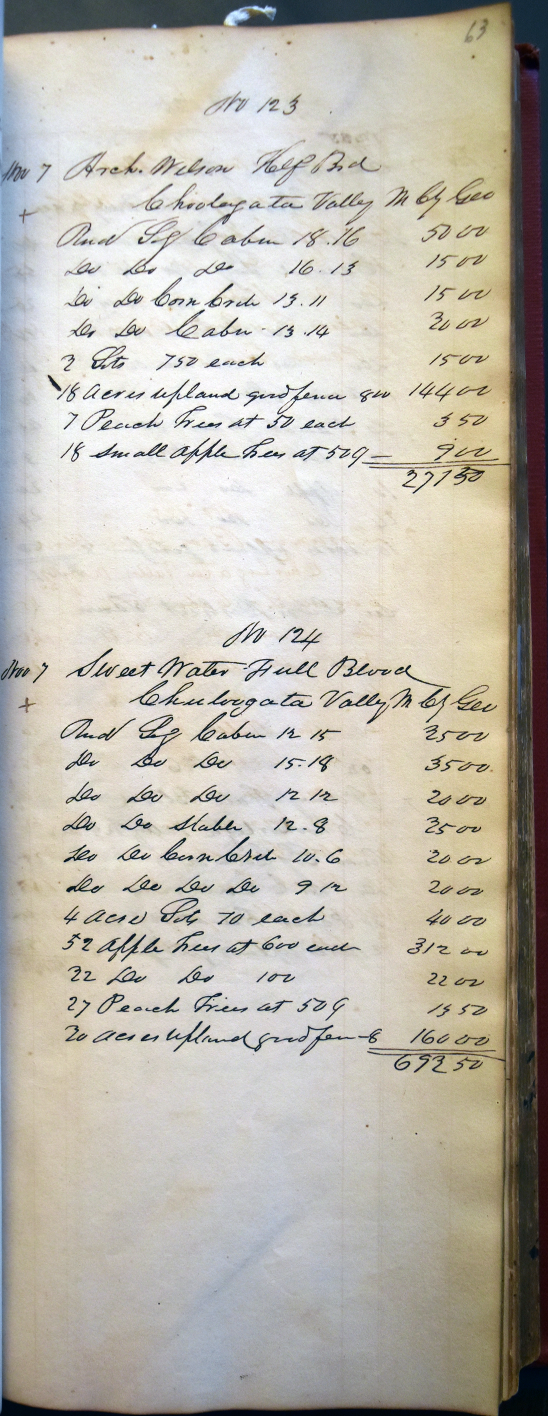 63
No 123
Nov 7 Arch. Wilson Half Brd
+ Chooloogata Valley M Cty Geo
Rnd Log Cabin 18.16 50 00
Do Do Do 16.13 15 00
Do Do Corn Crib 13.11 15 00
Do Do Cabin 13.14 20 00
2 Lots 750 each 15 00
18 Acres upland good fence 800 144 00
7 Peach Trees at 50 each 3 50
18 small Apple Trees at 50 9 00
271 50
No 124
Nov 7 Sweet Water Full Blood
+ Chuloogata Valley M Cty Geo
Rnd Log Cabin 12 15 25 00
Do Do Do 15.18 35 00
Do Do Do 12 12 20 00
Do Do Stable 12.8 25 00
Do Do Corn Crib 10.6 20 00
Do Do Do Do 9 12 20 00
4 acre Lots 10 each 40 00
52 Apple Trees at 600 each 312 00
22 Do Do 100 22 00
27 Peach Trees at 50 13 50
20 acres upland good fen 8 160 00
692 50